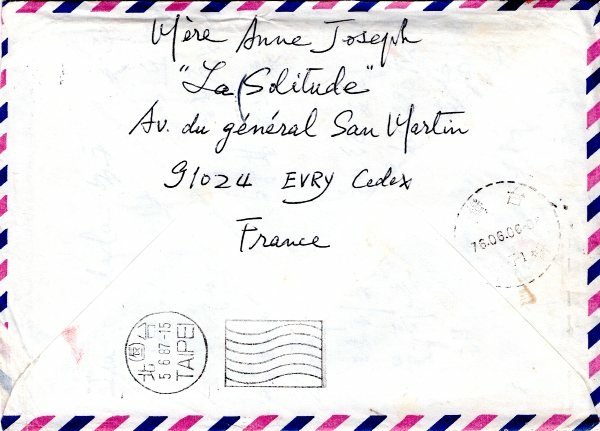 Mère Anne Joseph
"La Solitude"
Av. du général San Martin
91024 EVRY Cedex
France
76.06.06
台北
5.6.87-15
TAIPEI